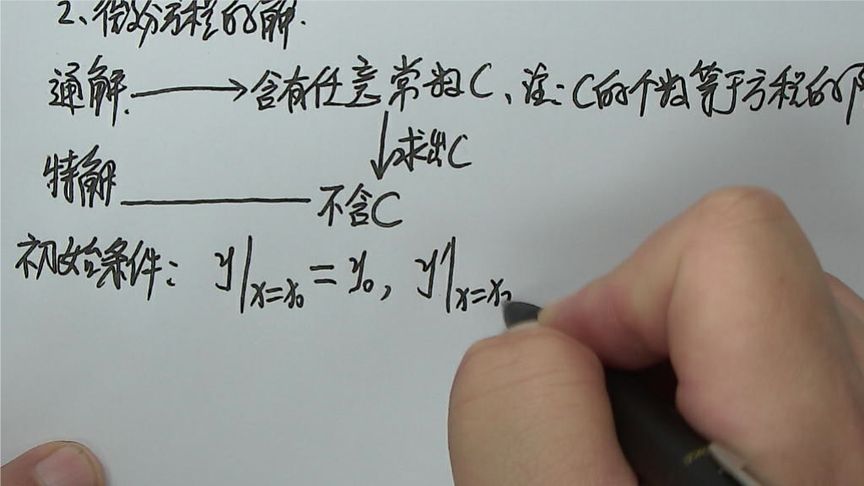 2、微分方程的解.
通解. → 含有任意常数C、注:C的个数等于方程的阶
↓求出C
特解 —— 不含C
初始条件: y|x=x₀ = y₀, y'|x=x